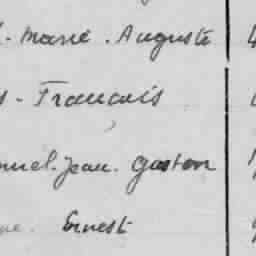 - Marie. Auguste
s - Francais
nuel. Jean. Gaston
ne. Ernest